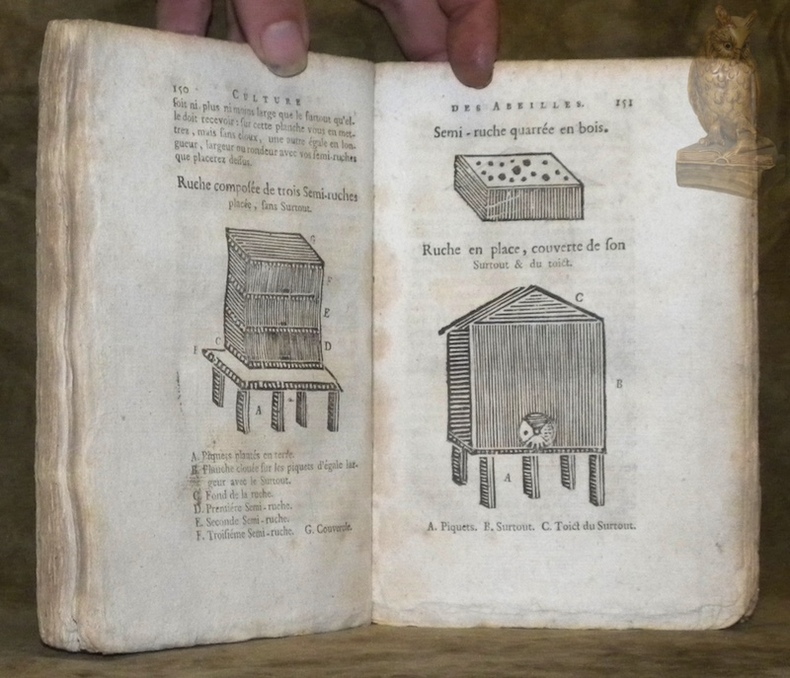 150 CULTURE
ſois ni plus ni moins large que le ſurtout qu'el-
le doit recevoir: ſur cette planche vous en met-
trez, mais ſans cloux, une autre égale en lon-
gueur, largeur ou rondeur avec vos ſemi-ruches
que placerez deſſus.
Ruche compoſée de trois Semi-ruches
placée, ſans Surtout.
G
F
E
C
D
A
A. Piquets plantés en terre.
B. Planche clouée ſur les piquets d'égale lar-
geur avec le Surtout.
C. Fond de la ruche.
D. Premiére Semi-ruche.
E. Seconde Semi-ruche.
F. Troiſiéme Semi-ruche. G. Couvercle.
DES ABEILLES. 151
Semi-ruche quarrée en bois.
Ruche en place, couverte de ſon
Surtout & du toict.
C
B
A
A. Piquets. B. Surtout. C. Toict du Surtout.